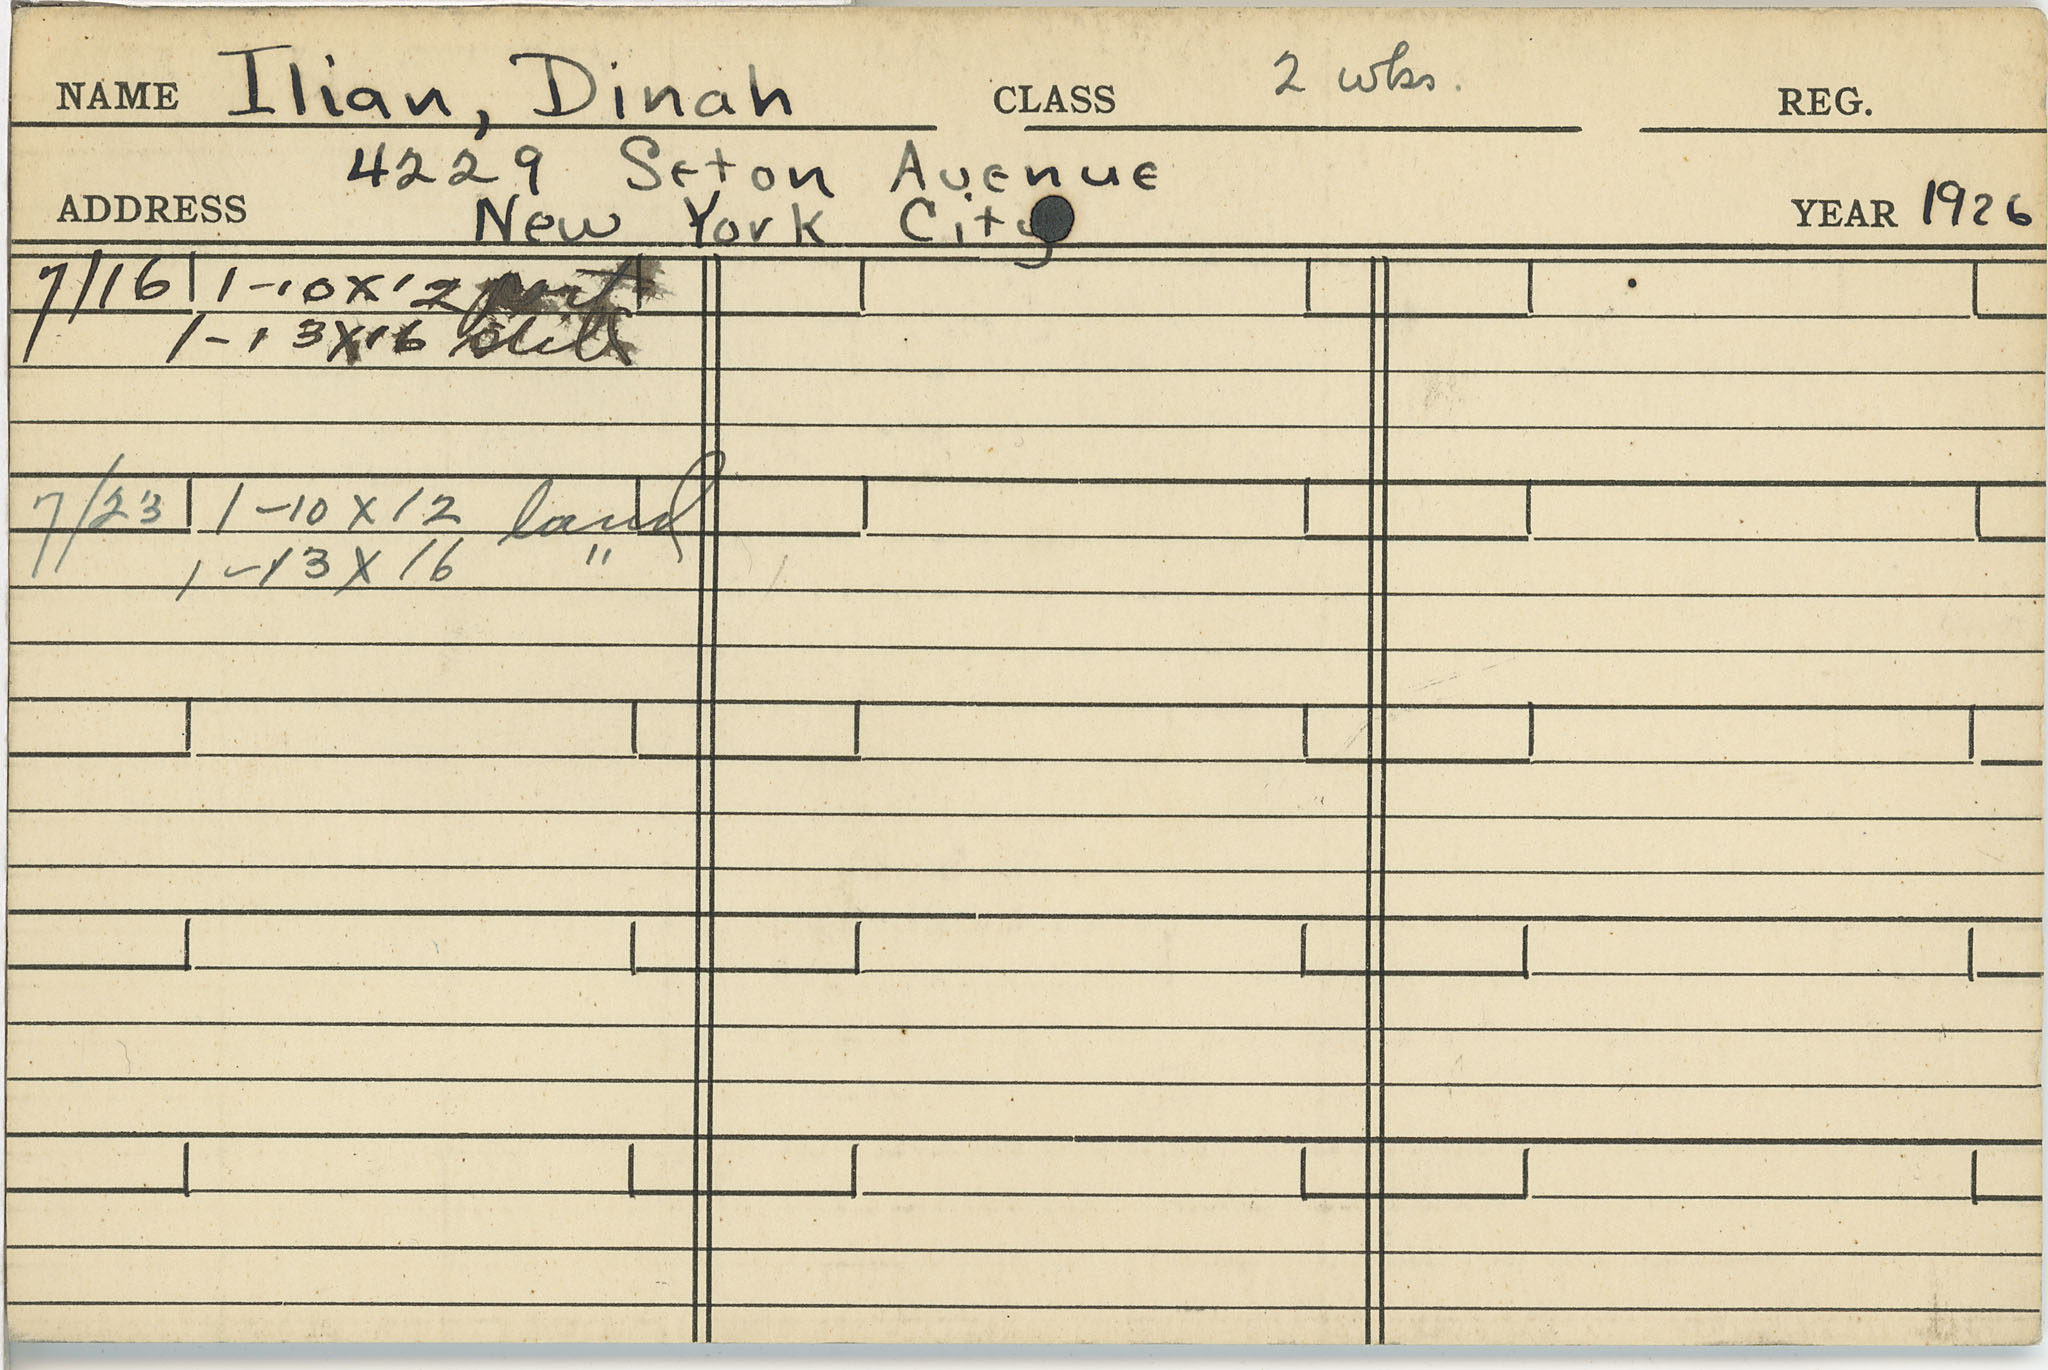 NAME Ilian, Dinah CLASS 2 wks. REG.
4229 Seton Avenue
ADDRESS New York City YEAR 1926
7/16 1-10 x 12 port
1-13 x 16 still
7/23 1-10 x 12 land
1-13 x 16 "